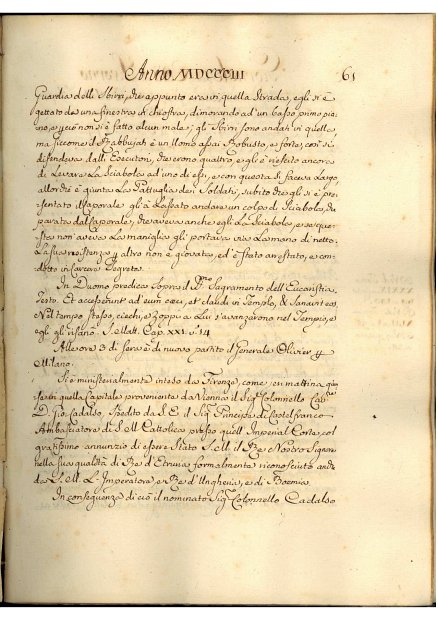 Anno MDCCCIII 61
Guardia delli Sbirri, che appunto era in quella strada, egli si è
gettato da una finestra di chiostra, dimorando ad un basso primo pia-
no, e però non si è fatto alcun male; gli Sbirri sono andati in quelle,
ma siccome il Rabbujati è un Uomo assai Robusto, e forte, così si
difendeva dalli Esecutori, che erono quattro, e gli è riescito ancora
di levare la Sciabola ad uno di essi, e con questa si faceva largo,
allorchè è giunta la Pattuglia dei Soldati, subito che gli si è pre-
sentato il Caporale gli à lasciato andare un colpo di Sciabola, pa-
rata dal Caporale, che aveva anche egli la Sciabola, e se que-
sta non aveva la maniglia gli portava via la mano di netto.
La sua resistenza altro non è giovata, ed è stato arrestato, e con-
dotto in Carcere Segreta.
In Duomo predica sopra il Sagramento dell'Eucaristia.
Testo. Et accesserunt ad eum cæci, et claudi in Templo, & sanavit eos.
Nel tempo stesso, ciechi, e zoppi a Lui s'avanzarono nel Tempio, e
egli gli risanò. S. Matt. Cap. XXI. v. 14
Alle ore 3 di sera è di nuovo partito il Generale Olivier
Milano.
Si è ministerialmente inteso da Firenze, come in mattina giun-
se in quella Capitale proveniente da Vienna il Sig. Colonnello Cav.
D. Gio. Cadalso, spedito da S. E. il Sig. Principe di Castelfranco
Ambasciatore di S. M. Cattolica presso quell'Imperial Corte, col
gratissimo annunzio di essere stato S. M. il Re Nostro Signore
nella sua qualità di Re d'Etruria formalmente riconosciuto anche
da S. M. L'Imperatore, e Re d'Ungheria, e di Boemia.
In conseguenza di ciò il nominato Sig. Colonnello Cadalso